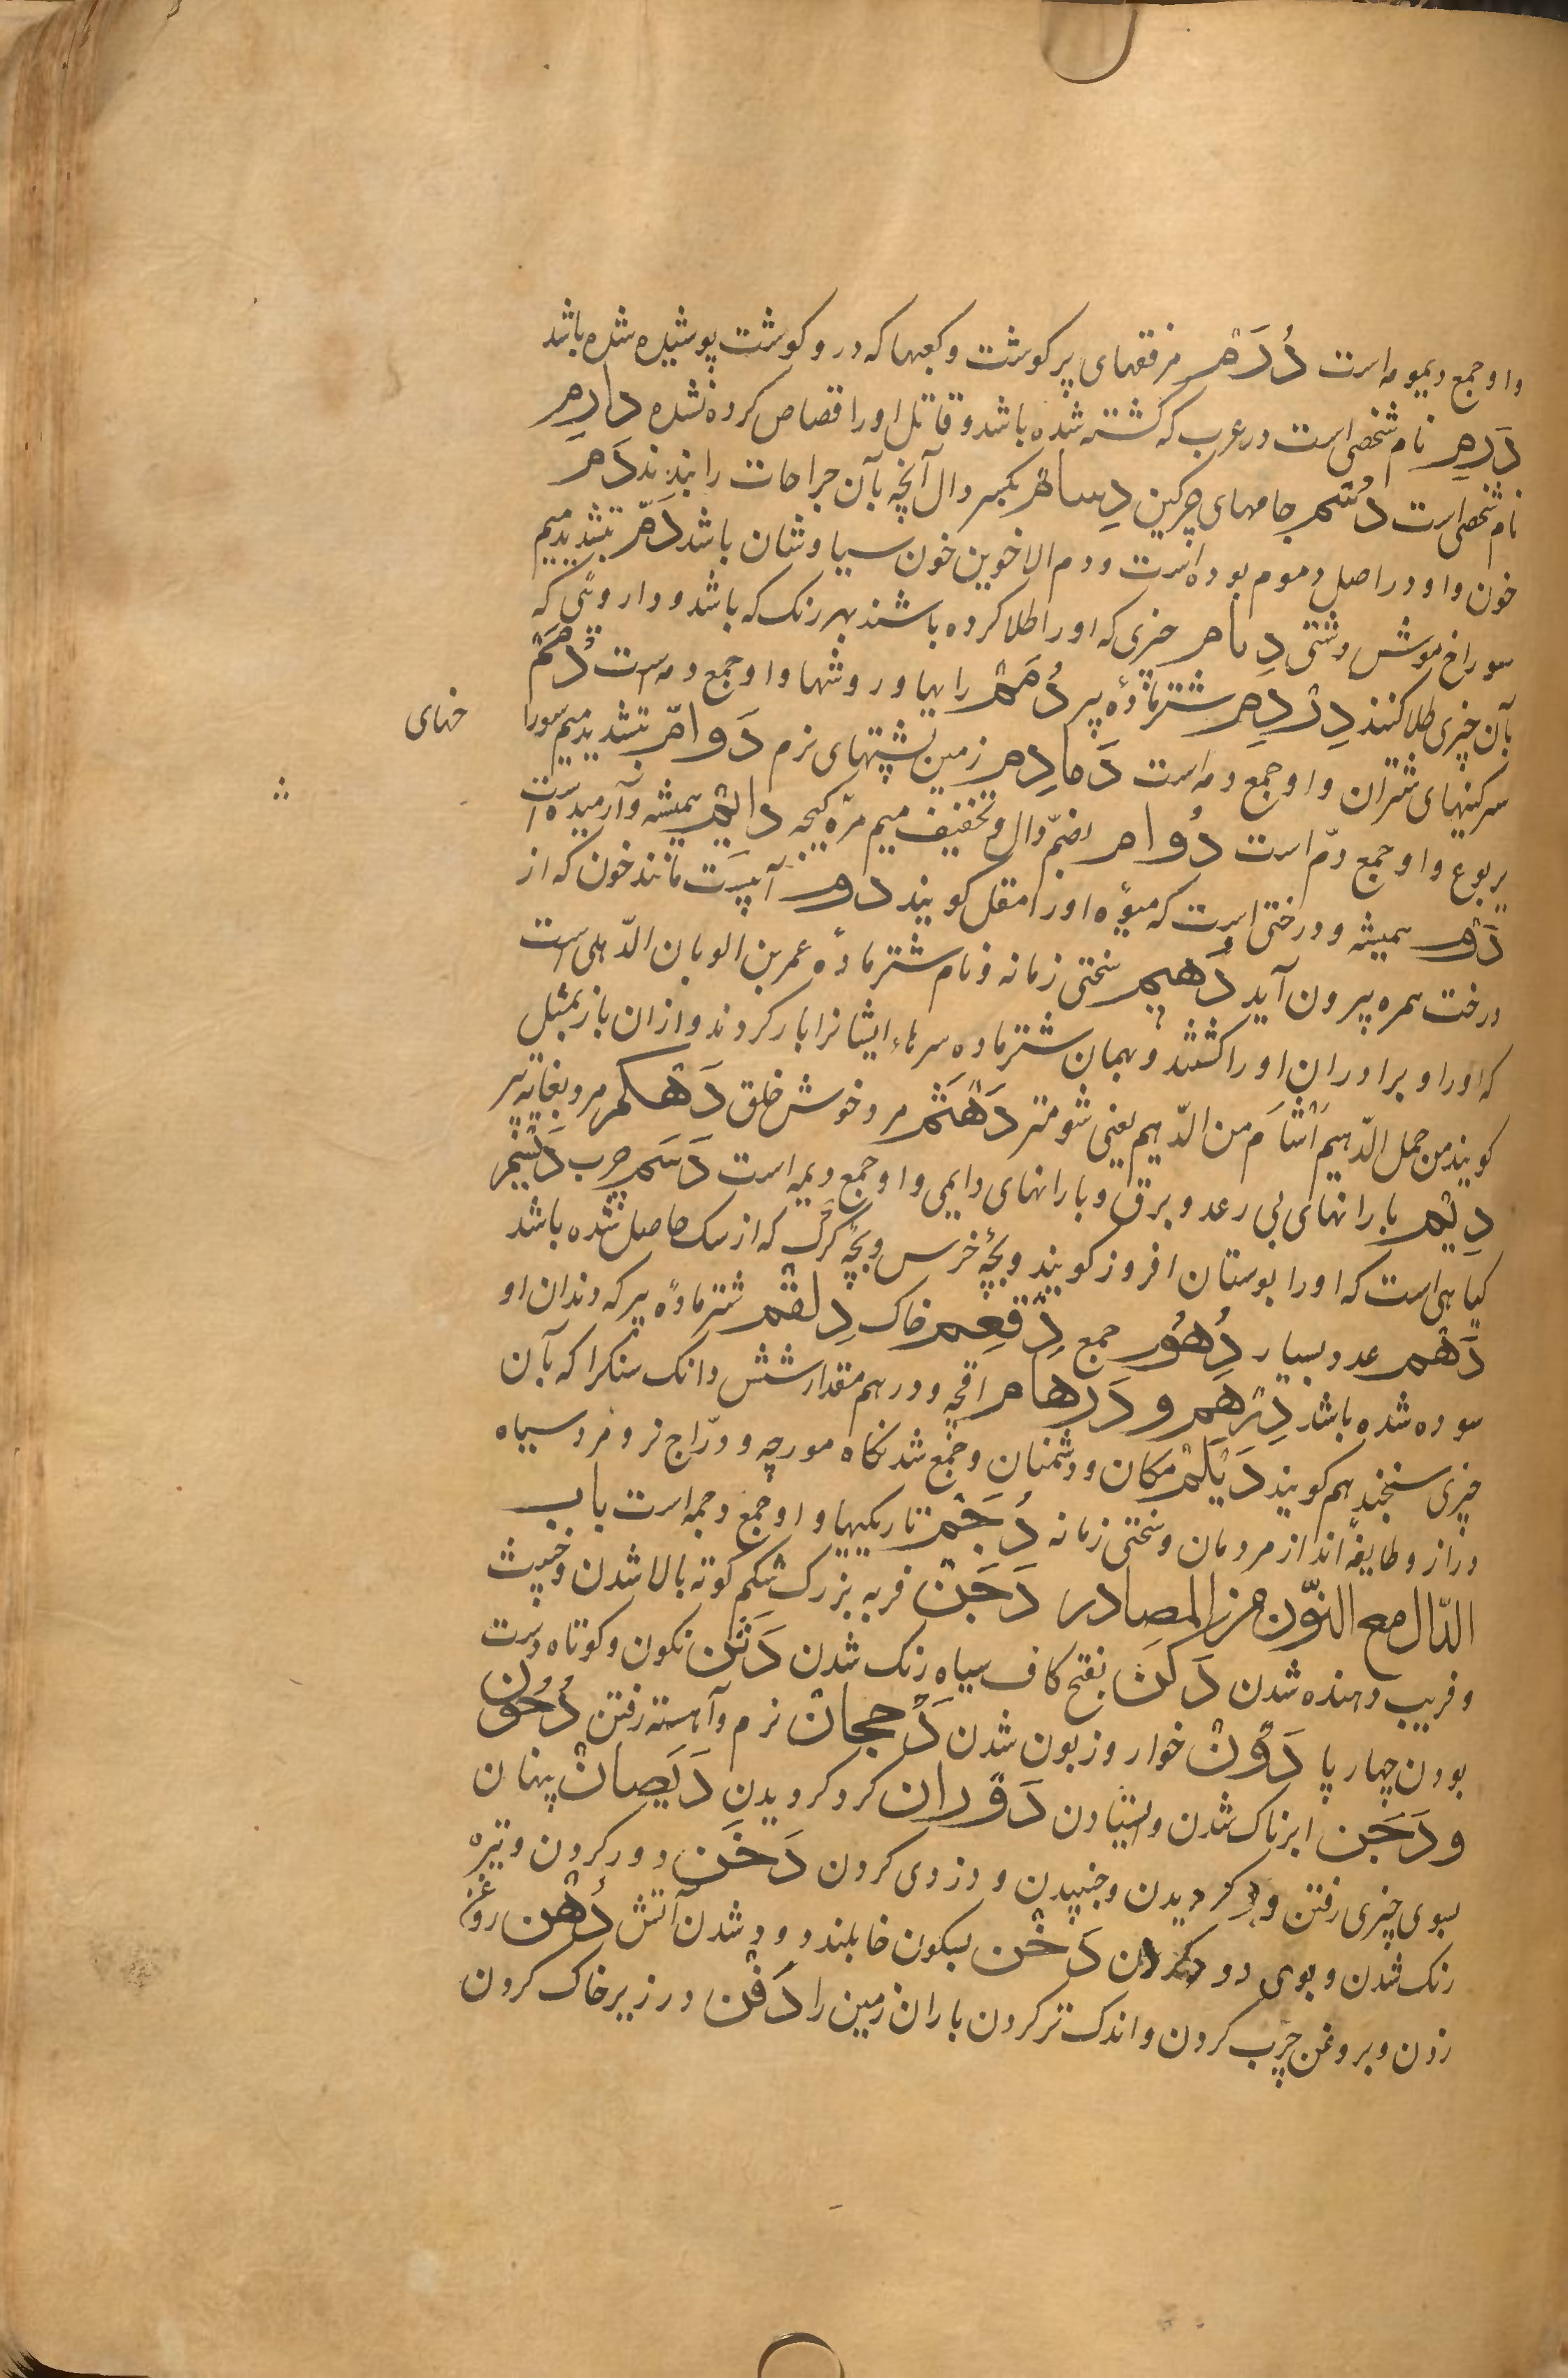 و او جمع دیمومه است دُرَم مرفقهای پر کوشت و کعبها که در و کوشت پوشیده شده باشد
دَرِم نام شخصی است در عرب که کشته شده باشد و قاتل او را قصاص کرده نشده دارِم
نام شخصی است دُسُم جامهای چرکین دِسام بکسر دال آنچه بآن جراحات را بندند دَم
خون و او در اصل دموم بوده است و دم الاخوین خون سیاوشان باشد دَمّ بتشدید میم
سوراخ موش دشتی دِمام چیزی که او را طلا کرده باشند بهر رنک که باشد و داروئی که
بآن چیزی طلا کنند دِرْدِم شتر مادهٔ پیر دُمَم راهها و روشها و او جمع دمه است دُمَم
سرکینهای شتران و او جمع دمه است دَمادِم زمین پشتهای نرم دَوامّ بتشدید میم سورا خهای
یربوع و او جمع دمّ است دُوام بضمّ دال و تخفیف میم مرّه کیجه دایم همیشه و آرمیده است
دَوْم همیشه و درختی است که میوهٔ او را مقل کویند دوم آبیست مانند خون که از
درخت سمره بیرون آید دُهیم سختی زمانه و نام شتر مادهٔ عمر بن الوبان الذّهلی است
که او را و برادران او را کشتند و بهمان شتر ماده سرهاء ایشانرا بار کردند و ازان باز بمثل
کویند من حمل الدّهیم اَشْأَم من الدّهیم یعنی شومتر دَهْثَم مرد خوش خلق دَهْکم مرد بغایة پیر
دِیَم بارانهای بی رعد و برق و بارانهای دایمی و او جمع دیمه است دَسَم چرب دَیْسَم
کیاهی است که او را بوستان افروز کویند و بچهٔ خرس و بچهٔ کرک که از سک حاصل شده باشد
دَهْم عدد بسیار دُهُور جمع دِقْعِم خاک دِلقِم شتر مادهٔ پیر که دندان او
سوده شده باشد دِرْهَم و دَرهام اقچه و درهم مقدار شش دانک سنکرا که بآن
چیزی سنجند هم کویند دَیْلَم مکان و دشمنان و جمع شدنکاه مورچه و درّاج نر و مرد سیاه
دراز و طایفهٔ اند از مردمان و سختی زمانه دُجَم تاریکیها و او جمع دجمه است باب
الدّال مع النّون من المصادر دَحَن فربه بزرک شکم کوته بالا شدن و خبیث
و فریب دهنده شدن دَکَن بفتح کاف سیاه رنک شدن دَنَن نکون و کوتاه دست
بودن چهار پا دَوْن خوار و زبون شدن دَجحان نرم و آهسته رفتن دُجُون
و دَجَن ابرناک شدن و ایستادن دَوَران کرد کردیدن دَیَصان پنهان
بسوی چیزی رفتن و بر کردیدن و جنبیدن و دزدی کردن دَخَن دور کردن و تیره
رنک شدن و بوی دود کردن دَخْن بسکون خا بلند دود شدن آتش دُهْن روغن
زدن و بروغن چرب کردن و اندک تر کردن باران زمین را دَفْن در زیر خاک کردن